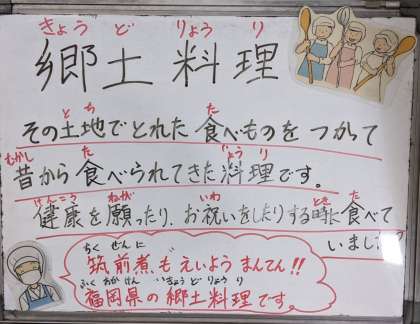 きょう ど りょう り
郷土料理
と ち た
その土地でとれた食べものをつかって
むかし た りょうり
昔から食べられてきた料理です。
けんこう ねが いわ とき た
健康を願ったり、お祝いをしたりする時に食べて
いました
ちく ぜん に
筑前煮もえいようまんてん!!
ふく おか けん きょう ど りょう り
福岡県の郷土料理です。